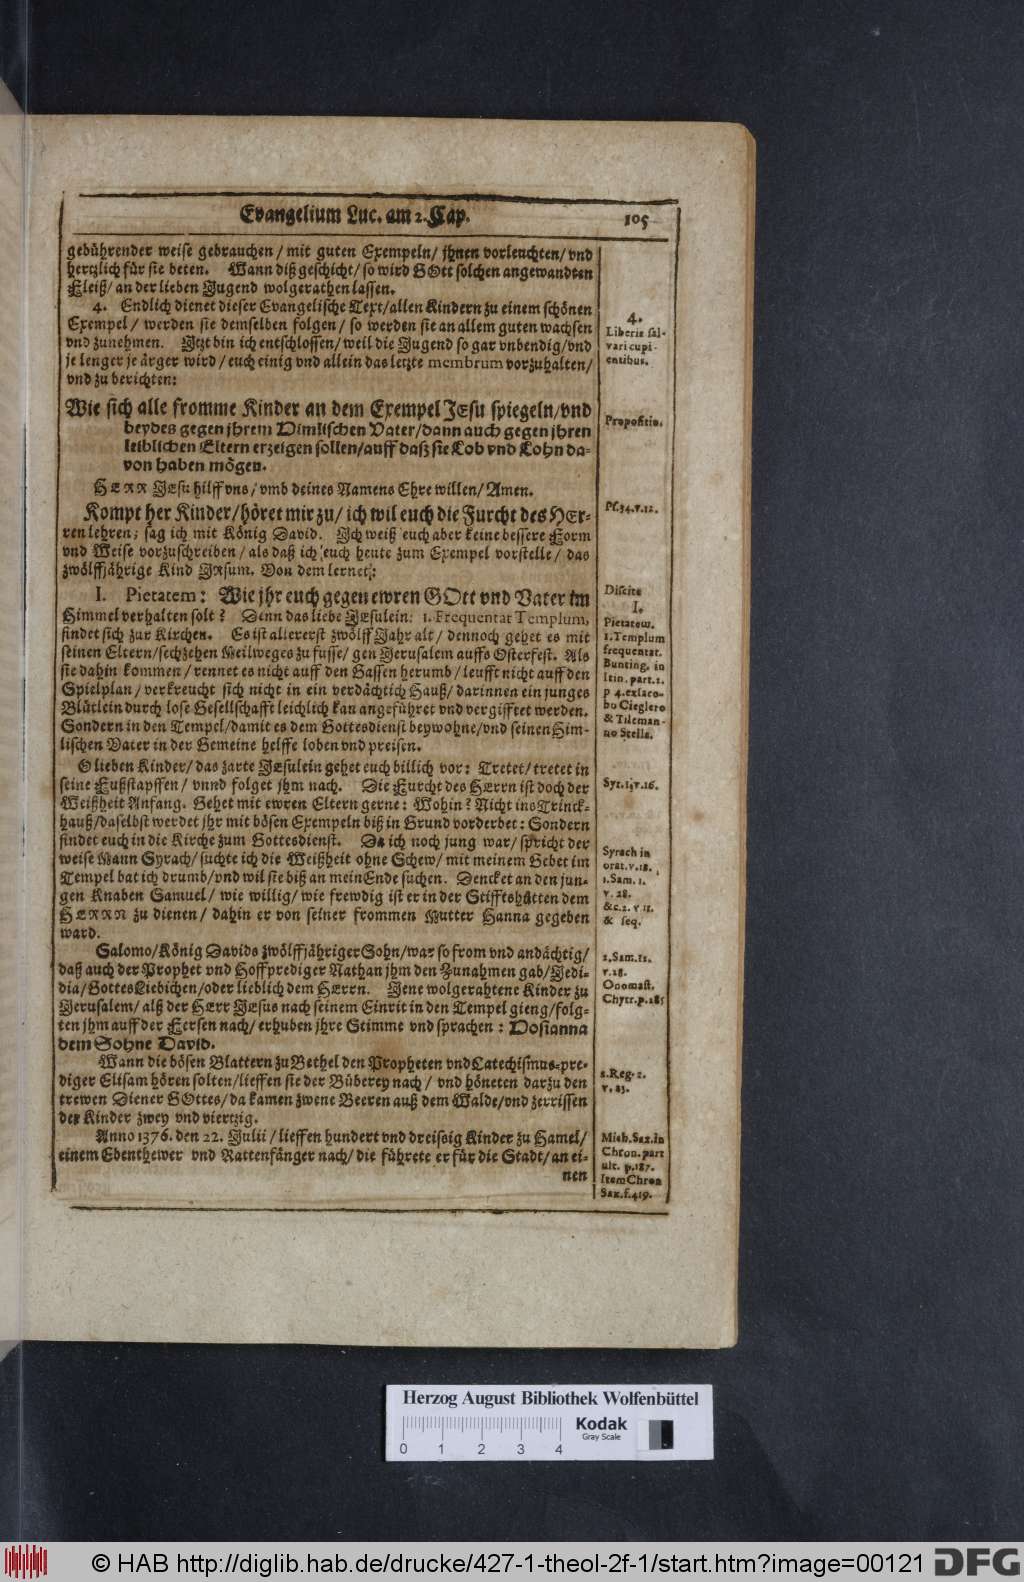 Evangelium Luc. am 2. Cap.
105
gebührender weise gebrauchen / mit guten Exempeln / jhnen vorleuchten / vnd
hertzlich für sie beten. Wann diß geschicht / so wird GOtt solchen angewandten
Fleiß / an der lieben Jugend wolgerathen lassen.
4. Endlich dienet dieser Evangelische Text / allen Kindern zu einem schönen
Exempel / werden sie demselben folgen / so werden sie an allem guten wachsen
vnd zunehmen. Jtzt bin ich entschlossen / weil die Jugend so gar vnbendig / vnd
je lenger je ärger wird / euch einig vnd allein das letzte membrum vorzuhalten /
vnd zu berichten:
Wie sich alle fromme Kinder an dem Exempel JEsu spiegeln / vnd
beydes gegen jhrem Himlischen Vater / dann auch gegen jhren
leiblichen Eltern erzeigen sollen / auff daß sie Lob vnd Lohn da-
von haben mögen.
HERR JEsu hilff vns / vmb deines Namens Ehre willen / Amen.
Kompt her Kinder / höret mir zu / ich wil euch die Furcht des HEr-
ren lehren; sag ich mit König David. Jch weiß euch aber keine bessere Form
vnd Weise vorzuschreiben / als daß ich euch heute zum Exempel vorstelle / das
zwölffjährige Kind JEsum. Von dem lernet:
I. Pietatem: Wie jhr euch gegen ewren GOtt vnd Vater im
Himmel verhalten solt? Denn das liebe JEsulein: 1. Frequentat Templum,
findet sich zur Kirchen. Es ist allererst zwölff Jahr alt / dennoch gehet es mit
seinen Eltern / sechzehen Meilweges zu fusse / gen Jerusalem auffs Osterfest. Als
sie dahin kommen / rennet es nicht auff den Gassen herumb / leufft nicht auff den
Spielplan / verkreucht sich nicht in ein verdächtich Hauß / darinnen ein junges
Blütlein durch lose Gesellschafft leichlich kan angeführet vnd vergifftet werden.
Sondern in den Tempel / damit es dem Gottesdienst beywohne / vnd seinen Him-
lischen Vater in der Gemeine helffe loben vnd preisen.
O lieben Kinder / das zarte JEsulein gehet euch billich vor: Tretet / tretet in
seine Fußstapffen / vnnd folget jhm nach. Die Furcht des HErrn ist doch der
Weißheit Anfang. Gehet mit ewren Eltern gerne: Wohin? Nicht ins Trinck-
hauß / daselbst werdet jhr mit bösen Exempeln biß in Grund vorderbet: Sondern
findet euch in die Kirche zum Gottesdienst. Da ich noch jung war / spricht der
weise Mann Syrach / suchte ich die Weißheit ohne Schew / mit meinem Gebet im
Tempel bat ich drumb / vnd wil sie biß an mein Ende suchen. Dencket an den jun-
gen Knaben Samuel / wie willig / wie frewdig ist er in der Stifftshütten dem
HERRN zu dienen / dahin er von seiner frommen Mutter Hanna gegeben
ward.
Salomo / König Davids zwölffjähriger Sohn / war so from vnd andächtig /
daß auch der Prophet vnd Hoffprediger Nathan jhm den Zunahmen gab / Jedi-
dia / Gottes Liebichen / oder lieblich dem HErrn. Jene wolgerahtene Kinder zu
Jerusalem / alß der HErr JEsus nach seinem Einrit in den Tempel gieng / folg-
ten jhm auff der Fersen nach / erhuben jhre Stimme vnd sprachen: Hosianna
dem Sohne David.
Wann die bösen Blattern zu Bethel den Propheten vnd Catechismus-pre-
diger Elisam hören solten / lieffen sie der Büberey nach / vnd höneten darzu den
trewen Diener GOttes / da kamen zwene Beeren auß dem Walde / vnd zerrissen
der Kinder zwey vnd viertzig.
Anno 1376. den 22. Julii / lieffen hundert vnd dreissig Kinder zu Hamel /
einem Ebenthewer vnd Rattenfänger nach / die führete er für die Stadt / an ei-
nen
4.
Liberis sal-
vari cupi-
entibus.
Propositio.
Ps. 34. v. 12.
Discite
I.
Pietatem.
1. Templum
frequentat.
Bunting. in
Itin. part. 2.
p 4. ex Iaco-
bo Cieglero
& Tileman-
no Stella.
Syr. 1. v. 16.
Syrach in
orat. v. 18.
1. Sam. 1.
v. 28.
& c. 2. v. 11.
& seq.
2. Sam. 12.
v. 28.
Onomast.
Chytr. p. 285
2. Reg. 2.
v. 23.
Mich. Sax. in
Chron. part
ult. p. 187.
Item Chron
Sax. f. 419.
Herzog August Bibliothek Wolfenbüttel
0 1 2 3 4
Kodak
Gray Scale
© HAB http://diglib.hab.de/drucke/427-1-theol-2f-1/start.htm?image=00121
DFG